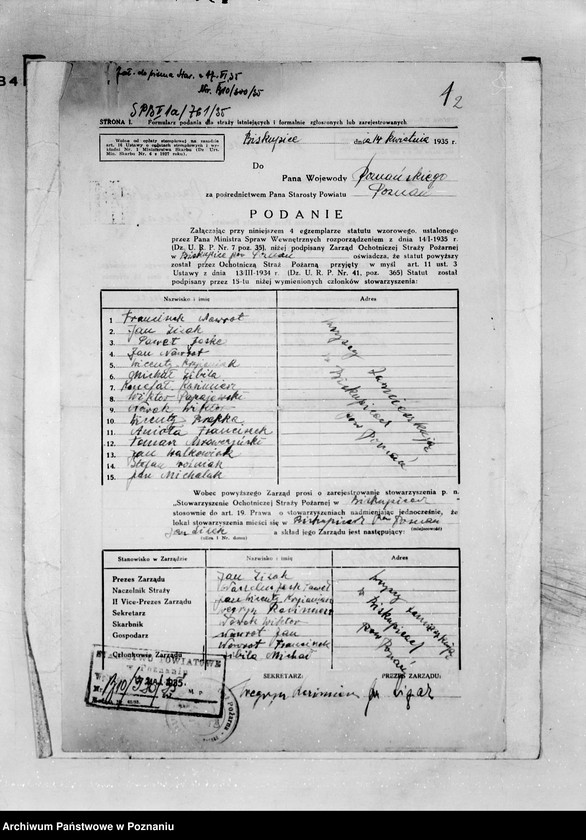 Zał. do pisma Star. z 17.VI.35
Nr. B10/300/35
SPBI 1a/761/35
1 2
STRONA I. Formularz podania dla straży istniejących i formalnie zgłoszonych lub zarejestrowanych
Wolne od opłaty stemplowej na zasadzie
art. 16 Ustawy o opłatach stemplowych i wy-
kładni Nr. 1 Ministerstwa Skarbu (Dz. Urz.
Min. Skarbu Nr. 4 z 1927 roku).
Biskupice dnia 14 kwietnia 1935 r.
Do
Pana Wojewody Poznańskiego
za pośrednictwem Pana Starosty Powiatu Poznań
PODANIE
Załączając przy niniejszem 4 egzemplarze statutu wzorowego, ustalonego
przez Pana Ministra Spraw Wewnętrznych rozporządzeniem z dnia 14/I-1935 r.
(Dz. U. R. P. Nr. 7 poz. 35), niżej podpisany Zarząd Ochotniczej Straży Pożarnej
w Biskupice pow Poznań oświadcza, że statut powyższy
został przez Ochotniczą Straż Pożarną przyjęty w myśl art. 11 ust. 3
Ustawy z dnia 13/III-1934 r. (Dz. U. R. P. Nr. 41, poz. 365) Statut został
podpisany przez 15-tu niżej wymienionych członków stowarzyszenia:
Nazwisko i imię Adres
1 Franciszek Nawrot
2. Jan Zisak
3. Paweł Joske
4. Jan Nawrot
5. Wincenty
6. Michał Zibila
7. Kazimierz
8. Wiktor
9. Nowak Wiktor
10. Wincenty
11. Anioła Franciszek
12. Roman
13. Jan Walkowiak
14. Stefan Woźniak
15. Jan Michalak
wszyscy zamieszkują
w Biskupicach
pow Poznań
Wobec powyższego Zarząd prosi o zarejestrowanie stowarzyszenia p. n.
„Stowarzyszenie Ochotniczej Straży Pożarnej w Biskupicach
stosownie do art. 19. Prawa o stowarzyszeniach nadmieniając jednocześnie, że
lokal stowarzyszenia mieści się w Biskupicach pow Poznań
(miejscowość)
Jan a skład jego Zarządu jest następujący:
(ulica i Nr. domu)
Stanowisko w Zarządzie Nazwisko i imię Adres
Prezes Zarządu Jan Zisak
Naczelnik Straży Paweł
II Vice-Prezes Zarządu Wincenty
Sekretarz Kazimierz
Skarbnik Nowak Wiktor
Gospodarz Nawrot Jan
Nawrot Franciszek
Członkowie Zarządu Zibila Michał
wszyscy zamieszkują
w Biskupicach
pow Poznań
SEKRETARZ: PREZES ZARZĄDU:
STAROSTWO POWIATOWE
w Poznaniu
1935.
Archiwum Państwowe w Poznaniu